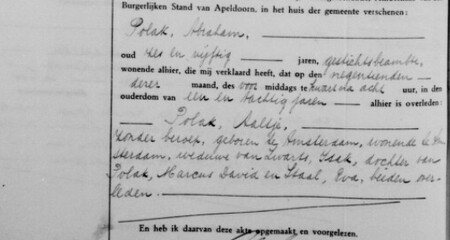 Burgerlijken Stand van Apeldoorn, in het huis der gemeente verschenen:
Polak, Abraham,
oud zes en vijftig jaren, gestichtsbeambte,
wonende alhier, die mij verklaard heeft, dat op den negentienden
dezer maand, des voor middags te kwart na acht uur, in den
ouderdom van een en tachtig jaren alhier is overleden:
Polak, Aaltje,
zonder beroep, geboren te Amsterdam, wonende te Am
sterdam, weduwe van Zwarts, Izak, dochter van
Polak, Marcus David en Staal, Eva, beiden over-
leden.
En heb ik daarvan deze akte opgemaakt en voorgelezen.